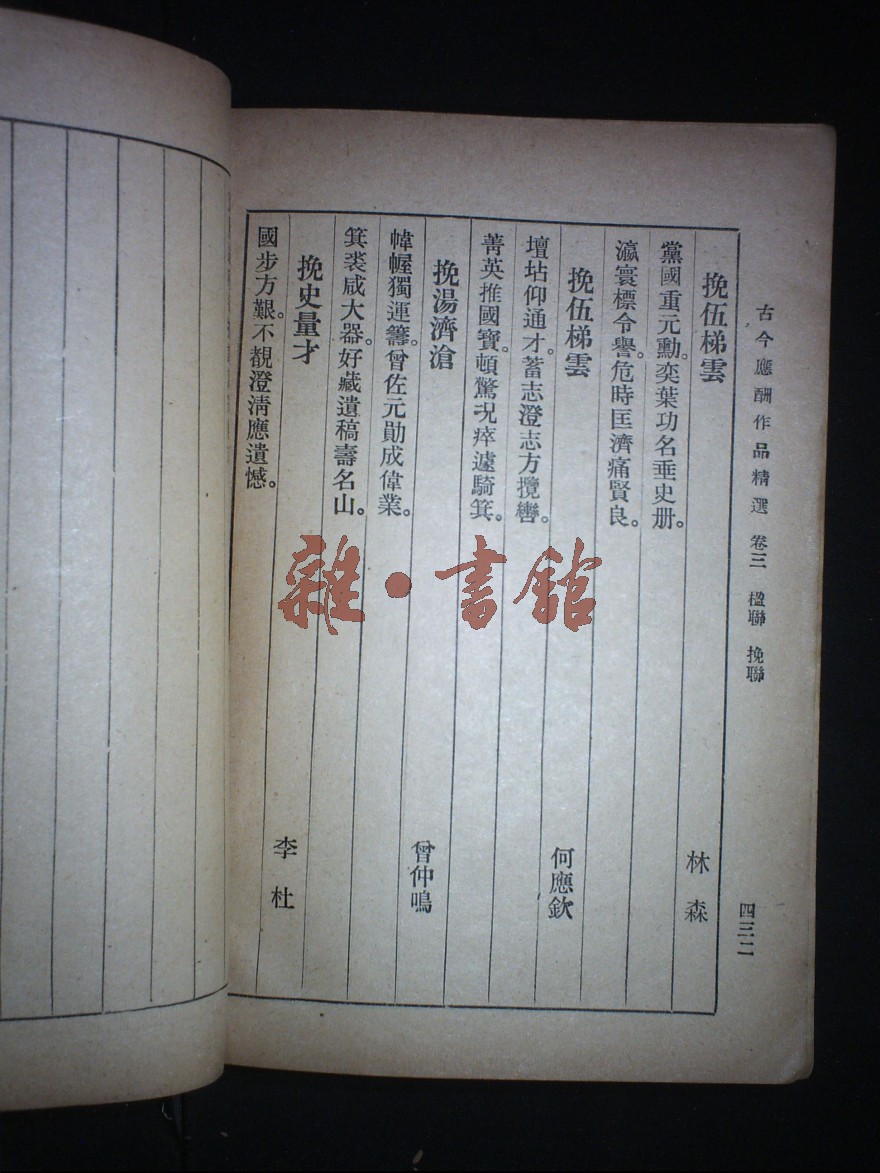 古今應酬作品精選 卷三 楹聯 挽聯
四三二
挽伍梯雲
林森
黨國重元勳。奕葉功名垂史册。
瀛寰標令譽。危時匡濟痛賢良。
挽伍梯雲
何應欽
壇坫仰通才。蓄志澄志方攬轡。
菁英推國寶。頓驚况瘁遽騎箕。
挽湯濟滄
曾仲鳴
幃幄獨運籌。曾佐元勛成偉業。
箕裘咸大器。好藏遺稿壽名山。
挽史量才
李杜
國步方艱。不覩澄清應遺憾。
雜·書館